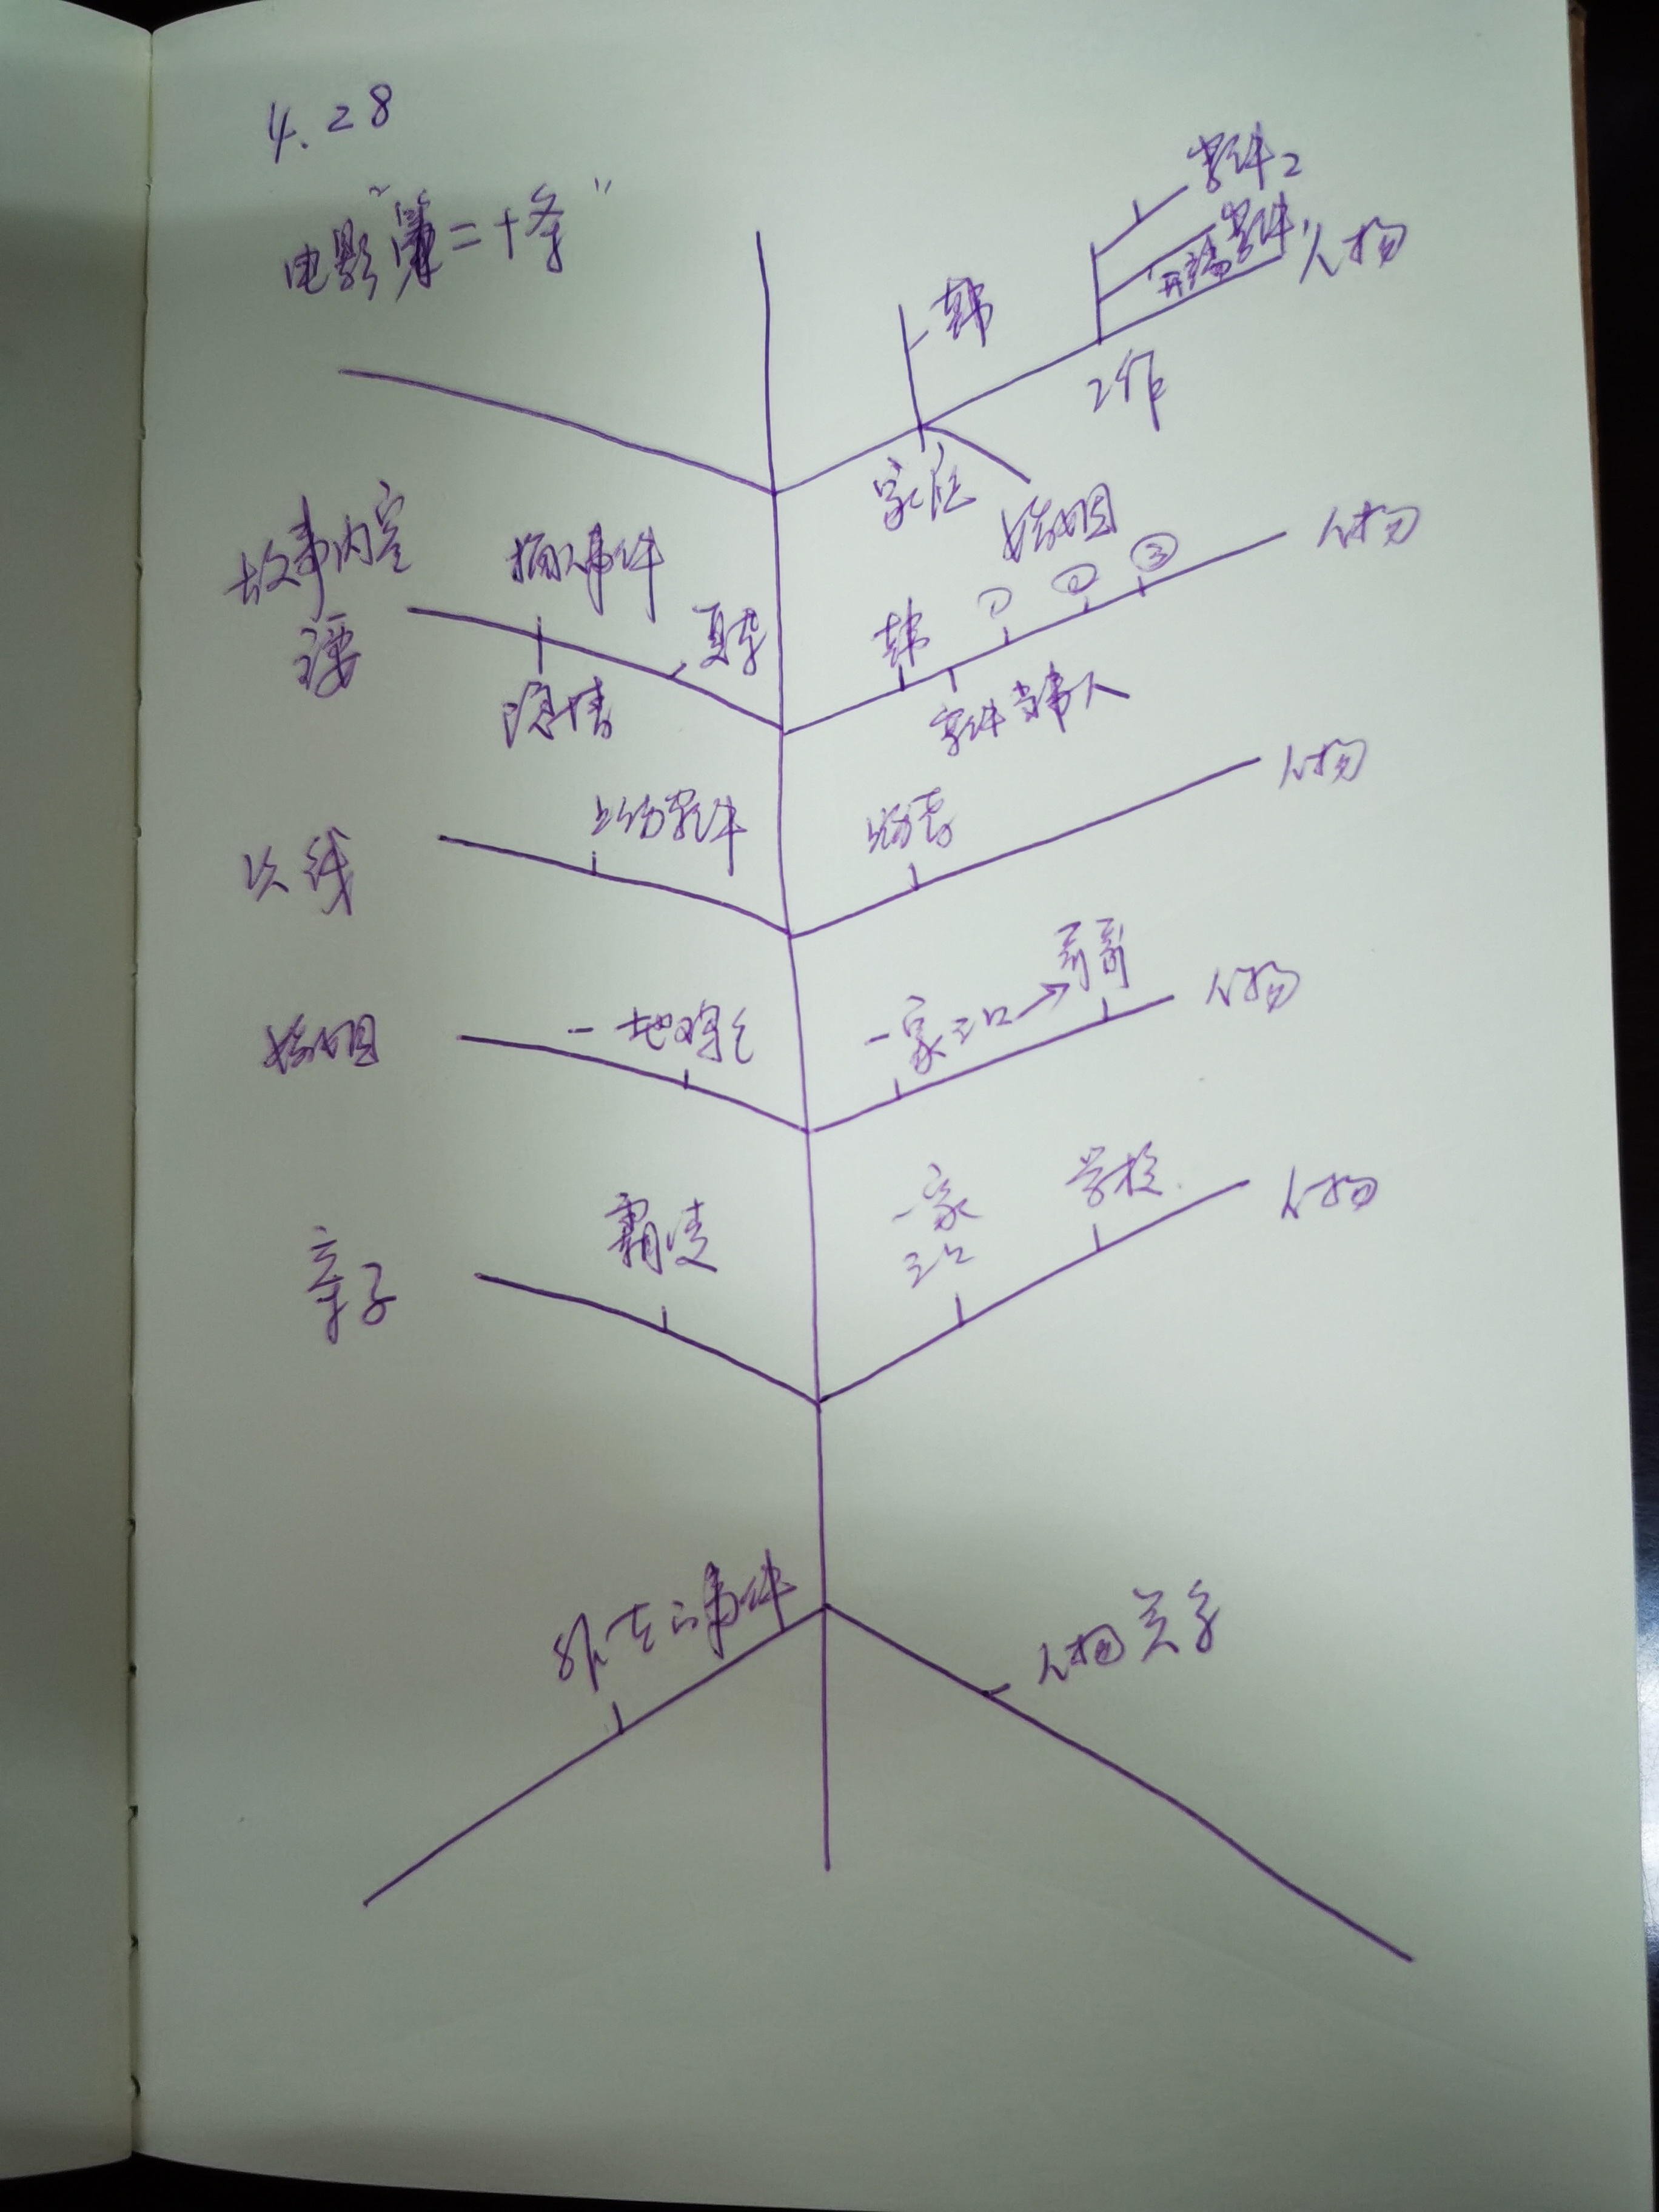 4.28
电影“第二十条”
案件2
案件1
开端
人物
韩
工作
家庭
婚姻
故事内容
捅人事件
复杂
隐情
人物
韩
①
②
③
案件当事人
人物
线
案件
婚姻
一地鸡毛
一家三口→哥哥
人物
亲子
霸凌
一家
三口
学校
人物
事件
人物关系